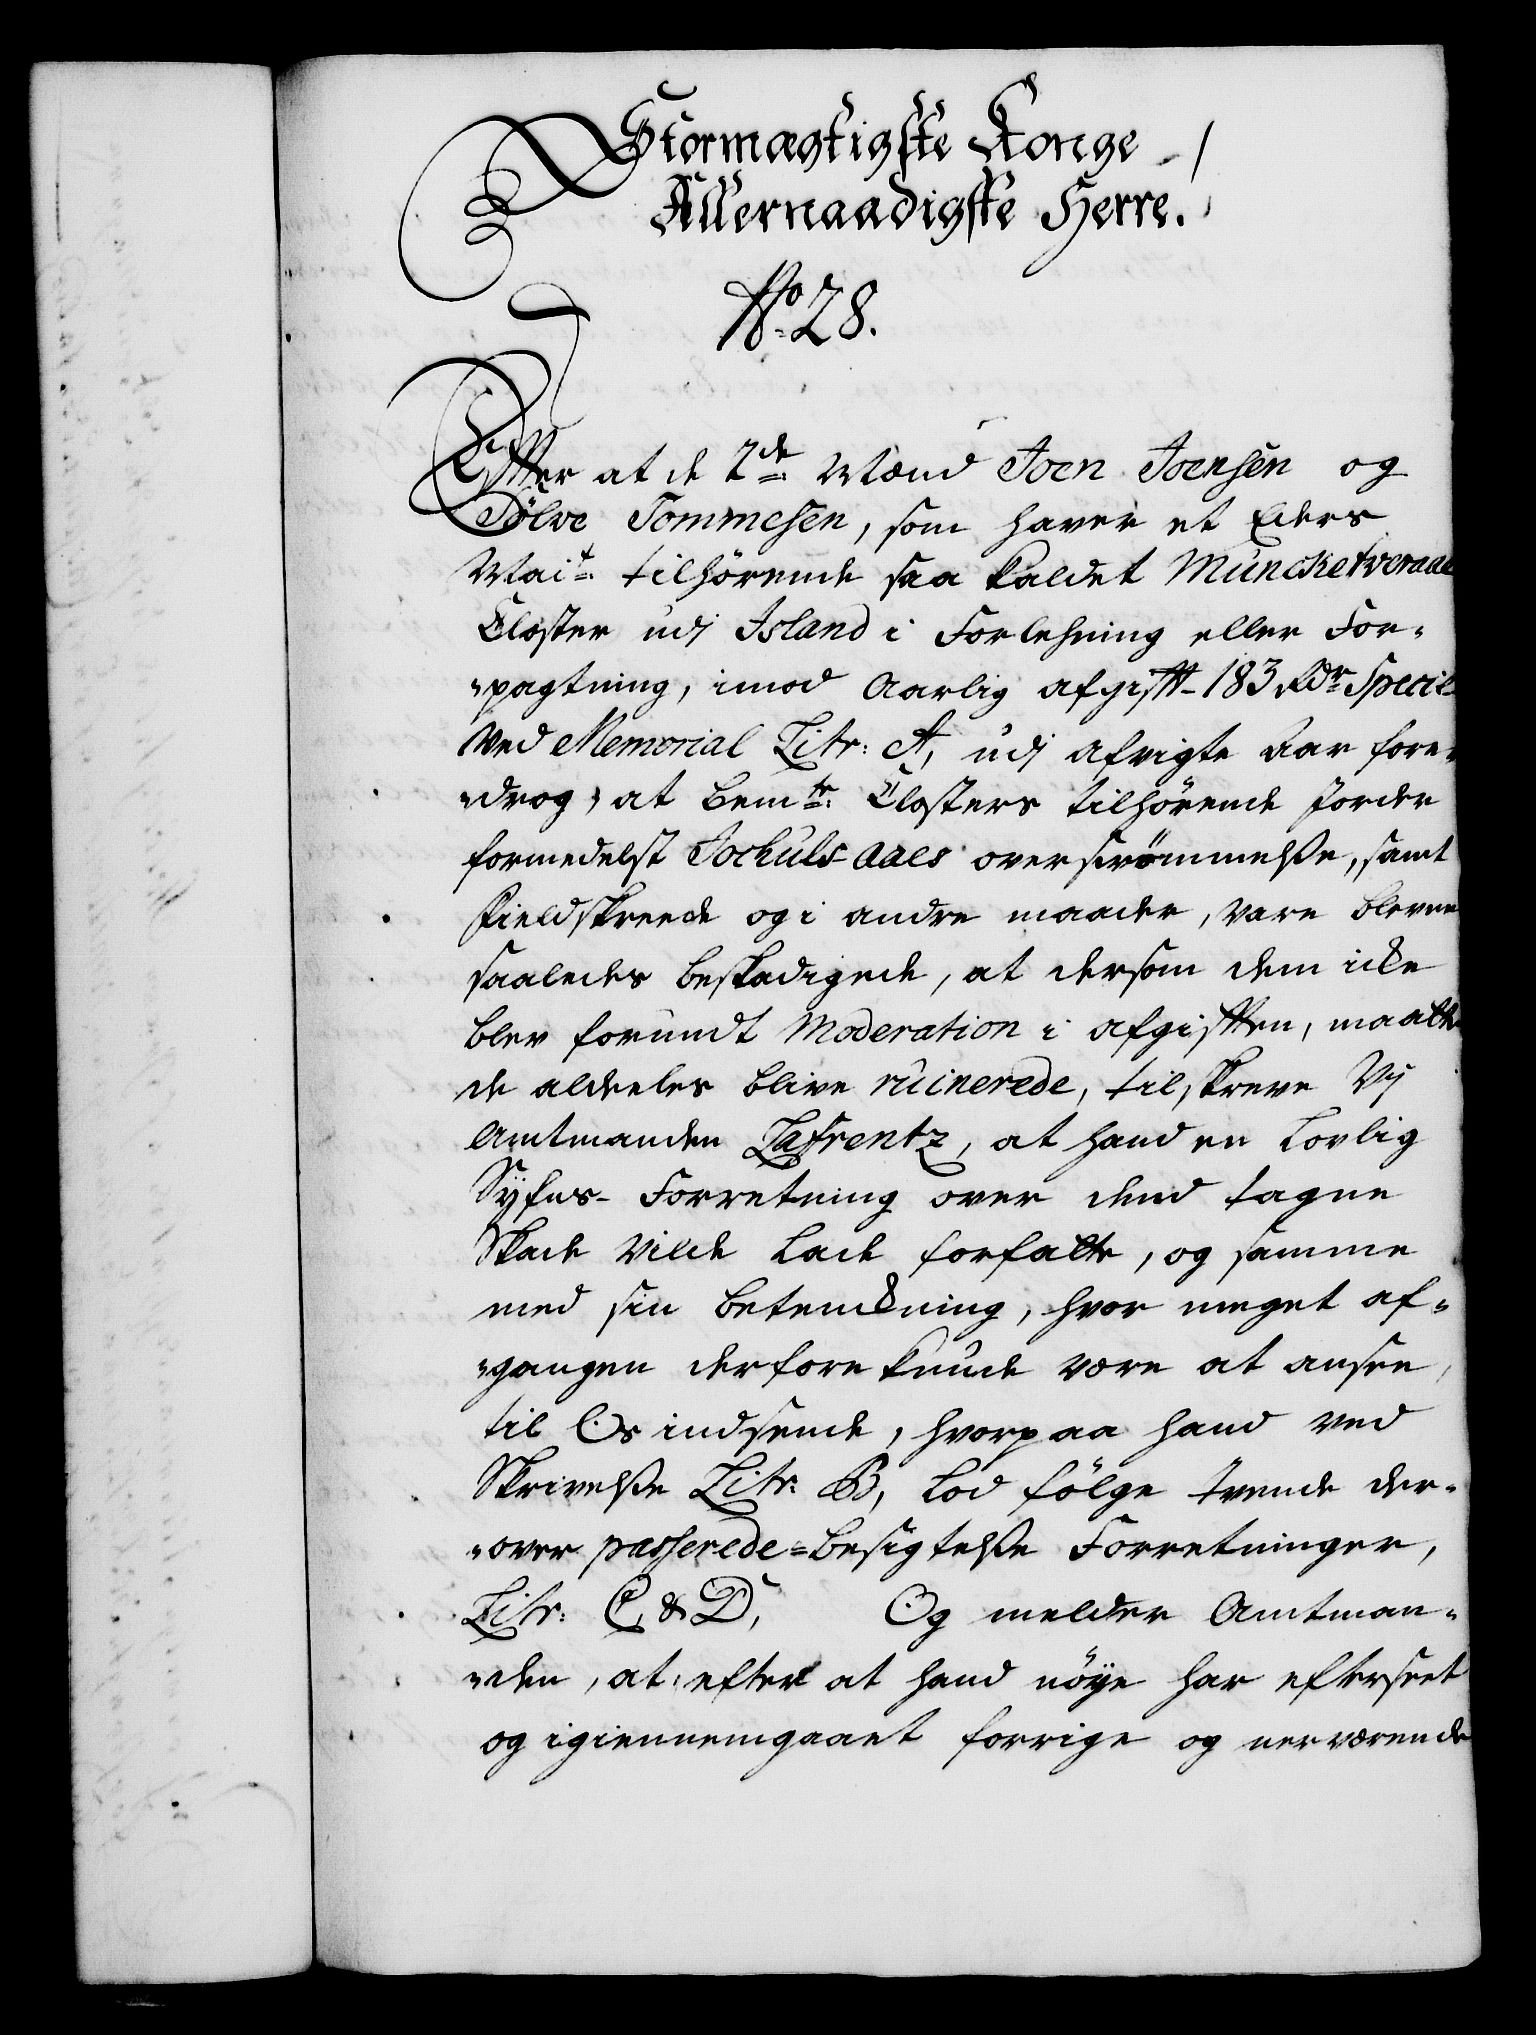 Stormægtigste Konge
Allernaadigste Herre.
No. 28.
Efter at de 2de Mænd Joen Joensen og
Sölve Tommesen, som haver et Eders
Mait: tilhörende saa kaldet Munketveraae
Closter udj Island i Forlehning eller For-
-pagtning, imod Aarlig afgifft 183 Rdr Specie
ved Memorial Litr: A, udj afvigte Aar fore-
-drog, at bemte: Closters tilhörende Jorder
formedelst Jockuls-Aaes overströmmelsse, samt
Fieldskreede og i andre maader, vare blevne
saaledes beskadigede, at dersom dem icke
blev forundt Moderation i afgifften, maatte
de aldeeles blive ruinerede, tilskreve Vj
Amtmanden Lafrentz, at hand en Lovlig
Syhns-Forretning over dend tagne
Skade vilde lade forfatte, og samme
med sin betenckning, hvor meget af-
-gangen derfore kunde være at ansee,
til Os indsende, hvorpaa hand ved
Skrivelsse Litr: B, lod fölge tvende der-
-over passerede-besigtelsse Forretninger,
Litr: C, & D, Og melder Amtman-
-den, at efter at hand nöye har efterseet
og igiennemgaaet forrige og nerværende